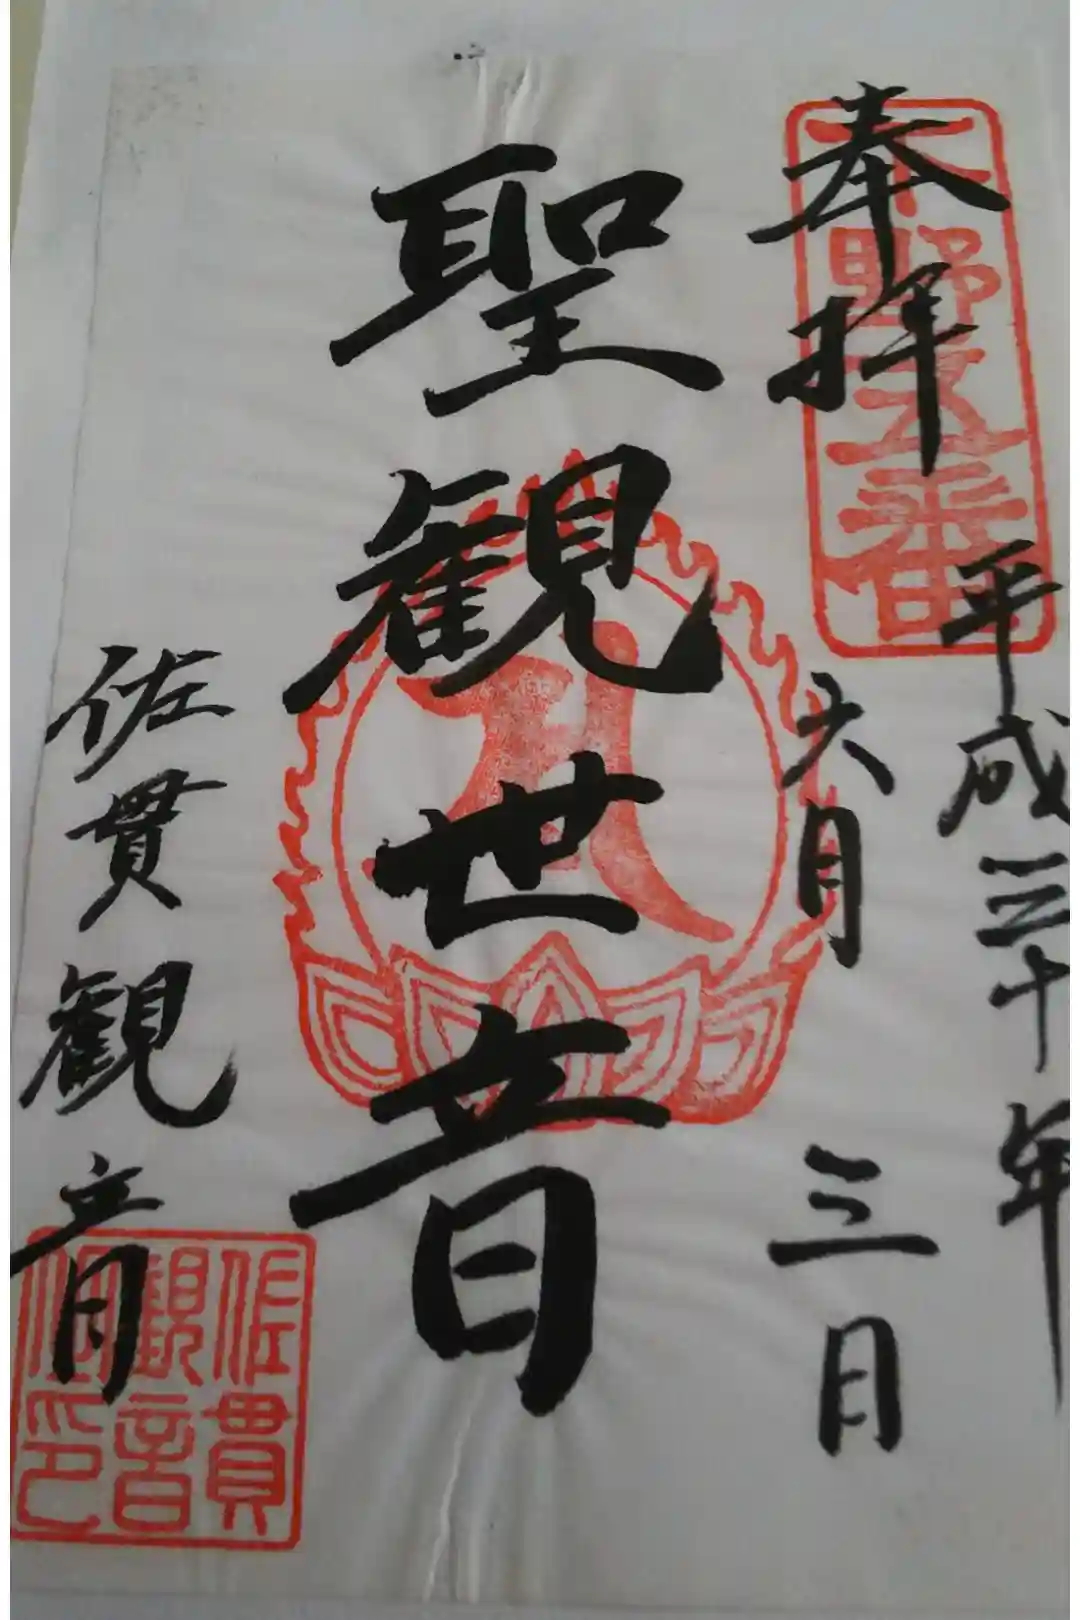 奉拝
下野五番
平成三十年
六月三日
聖観世音
佐貫観音
佐貫
観音
印